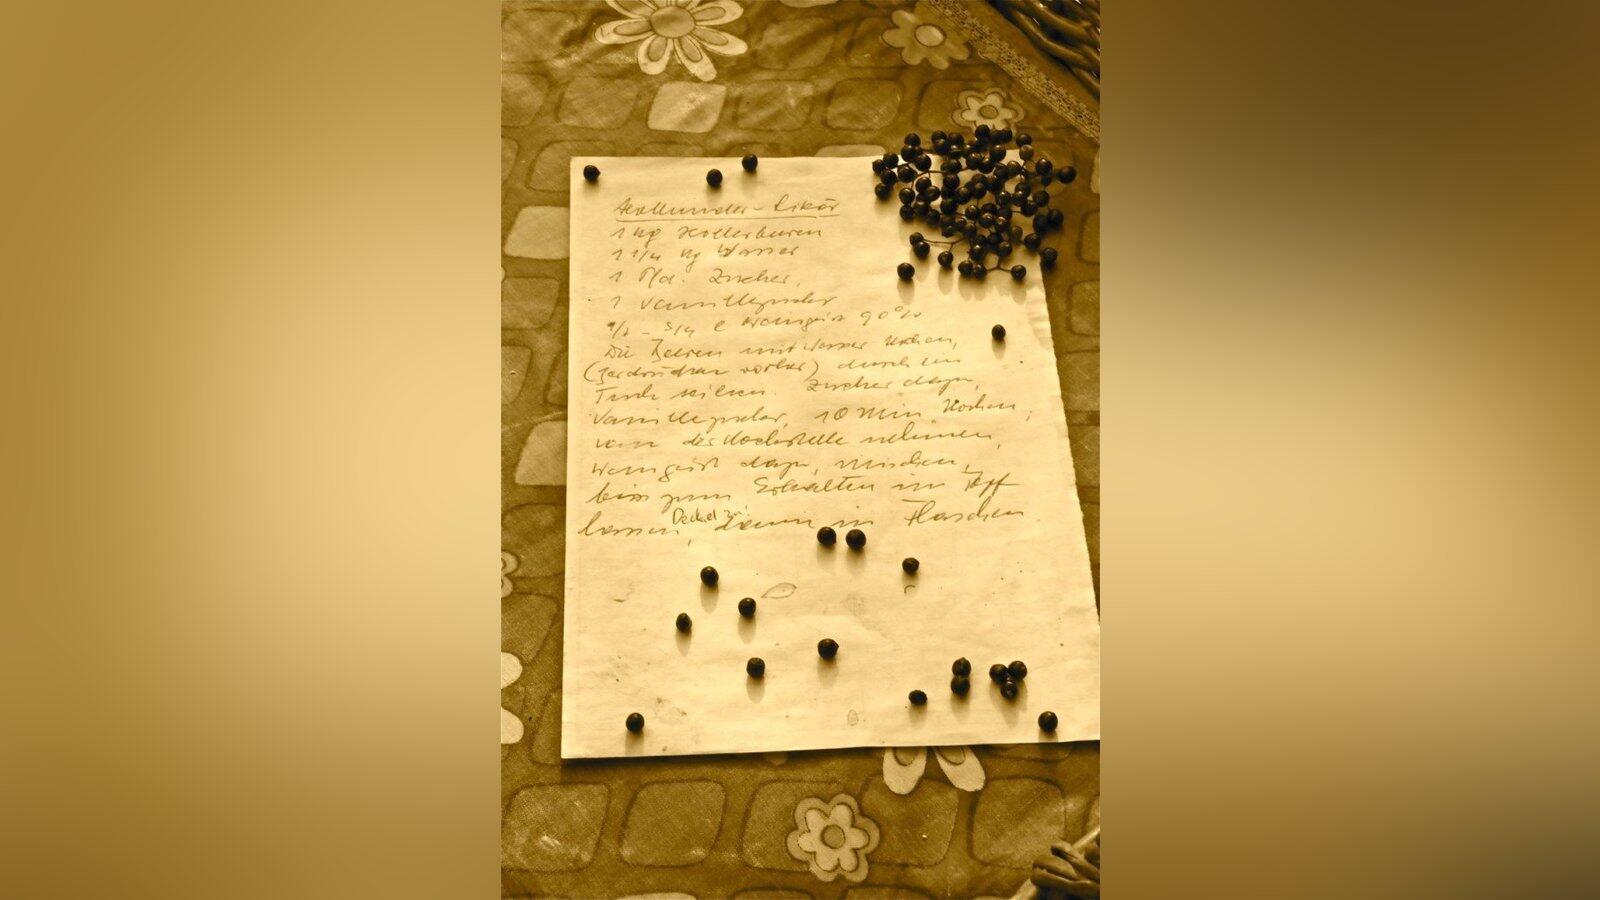 Hollunder-Likör
1 kg Hollerbeeren
1 1/4 kg Wasser
1 Pfd. Zucker,
1 Vanillezucker
1/2 - 3/4 l Weingeist 90%
Die Beeren mit Wasser kochen,
(zerdrücken vorher) durch ein
Tuch seihen. Zucker dazu,
Vanillezucker, 10 Min kochen,
von der Kochstelle nehmen,
Weingeist dazu, mischen,
bis zum Erkalten im Topf
lassen, Deckel zu! dann in Flaschen